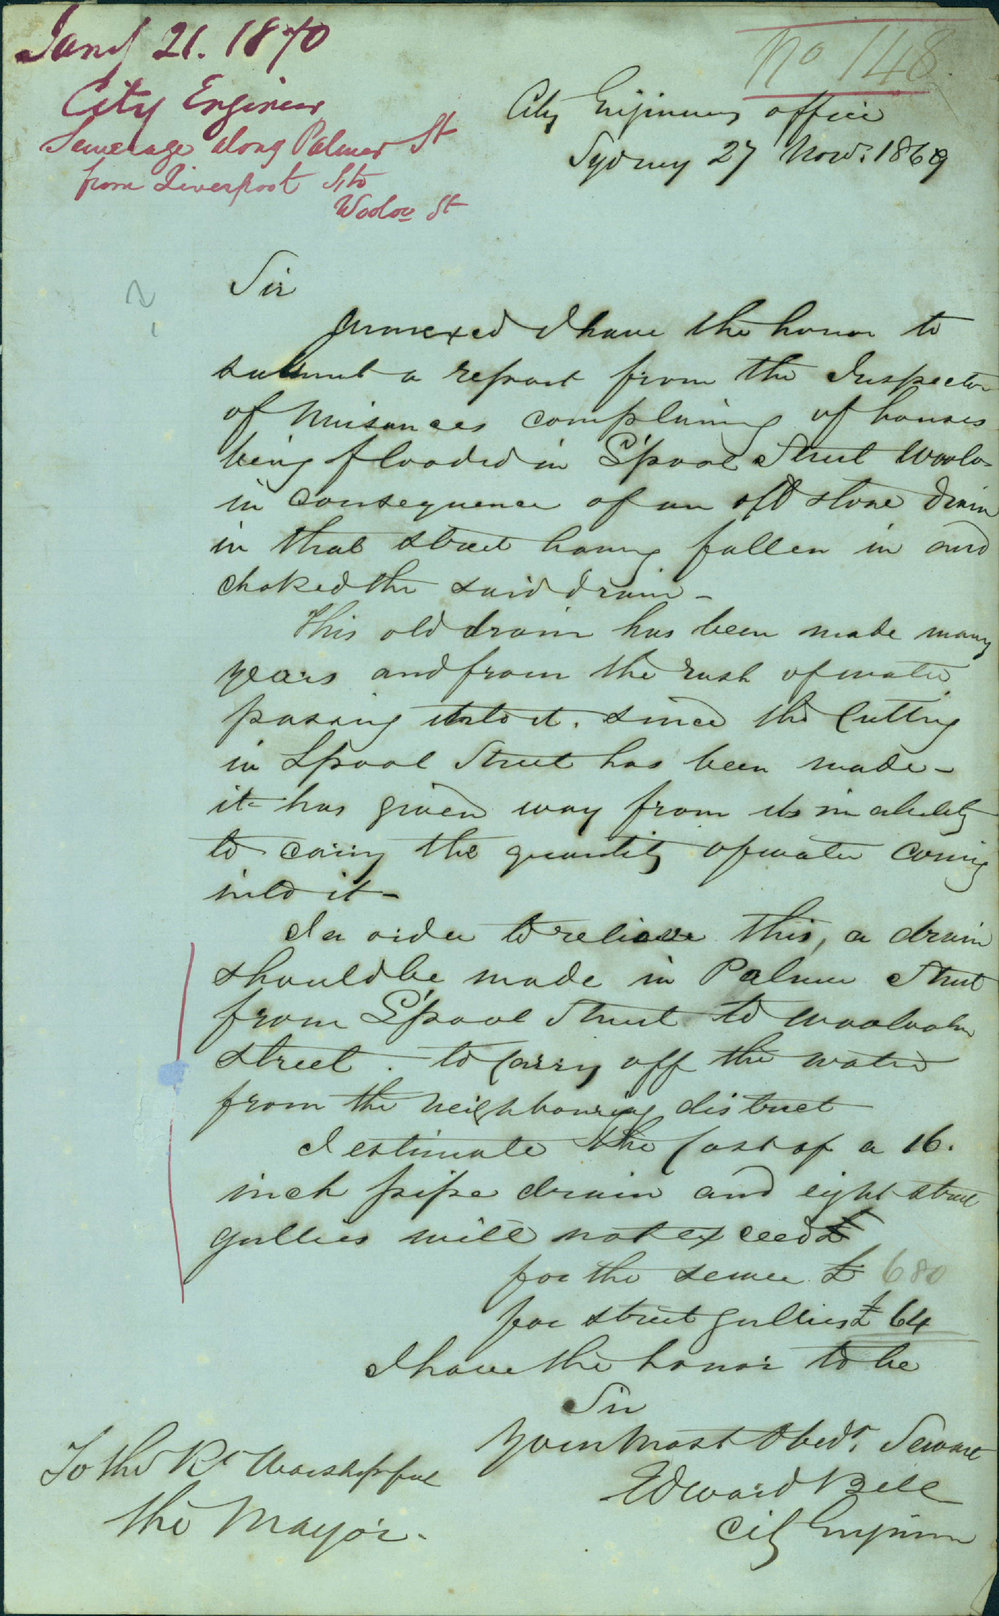 Jany 21. 1870
City Engineer
Sewerage along Palmer St
from Liverpool St to
Wooloo St
No 148
City Engineers office
Sydney 27 Novr. 1869
Sir
Annexed I have the honor to
submit a report from the Inspector
of Nuisances complaining of houses
being flooded in L'pool Street Wooloo
in consequence of an old stone drain
in that street having fallen in and
choked the said drain -
This old drain has been made many
years and from the rush of water
passing into it. since the Cutting
in Lpool Street has been made -
it has given way from its inability
to carry the quantity of water coming
into it -
In order to relieve this, a drain
should be made in Palmer Street
from L'pool Street to Wooloo
street. to Carry off the water
from the neighbouring district
I estimate the Cost of a 16.
inch pipe drain and eight street
gullies will not exceed £
for the sewer £ 680
for street gullies £ 64
I have the honor to be
Sir
Your Most Obedt. Servant
Edward Bell
City Engineer
To the Rt Worshipful
the Mayor -